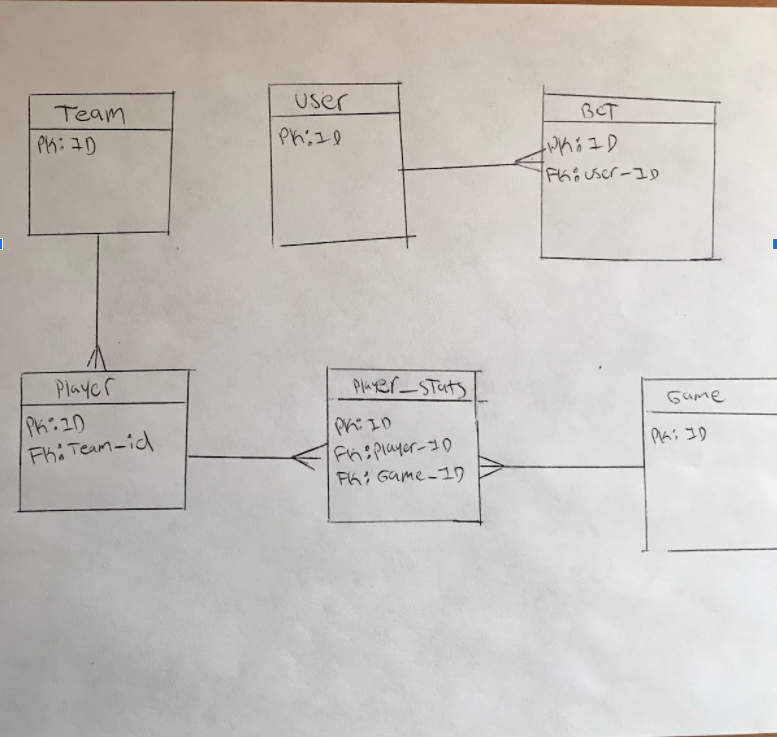 Team
PK: ID
User
PK: ID
BET
PK: ID
FK: User-ID
Player
PK: ID
FK: Team-id
Player_Stats
PK: ID
FK: Player-ID
FK: Game-ID
Game
PK: ID